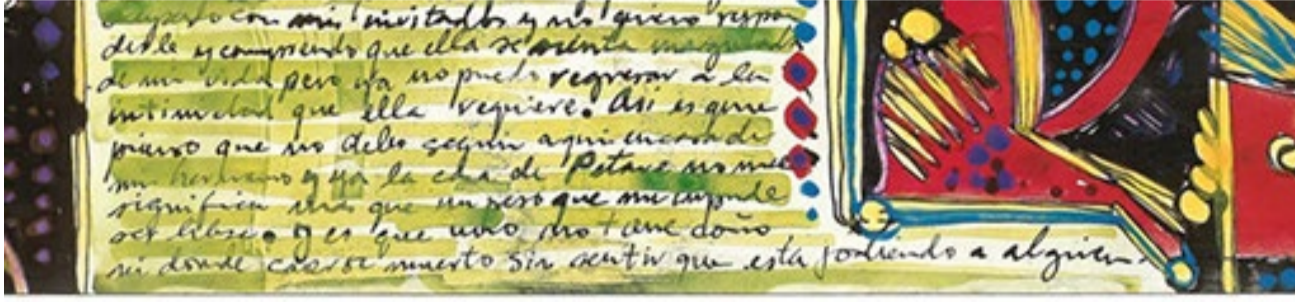 con mis invitados y no quiero respon
derle y comprendo que ella se sienta marginada
de mi vida pero ya no puedo regresar a la
intimidad que ella requiere. Asi es que
pienso que no debo seguir aqui en casa de
mi hermano y ya la casa de Petare no me
significa mas que un peso que me impide
ser libre. y es que uno no tiene
ni donde caerse muerto sin sentir que esta jodiendo a alguien.